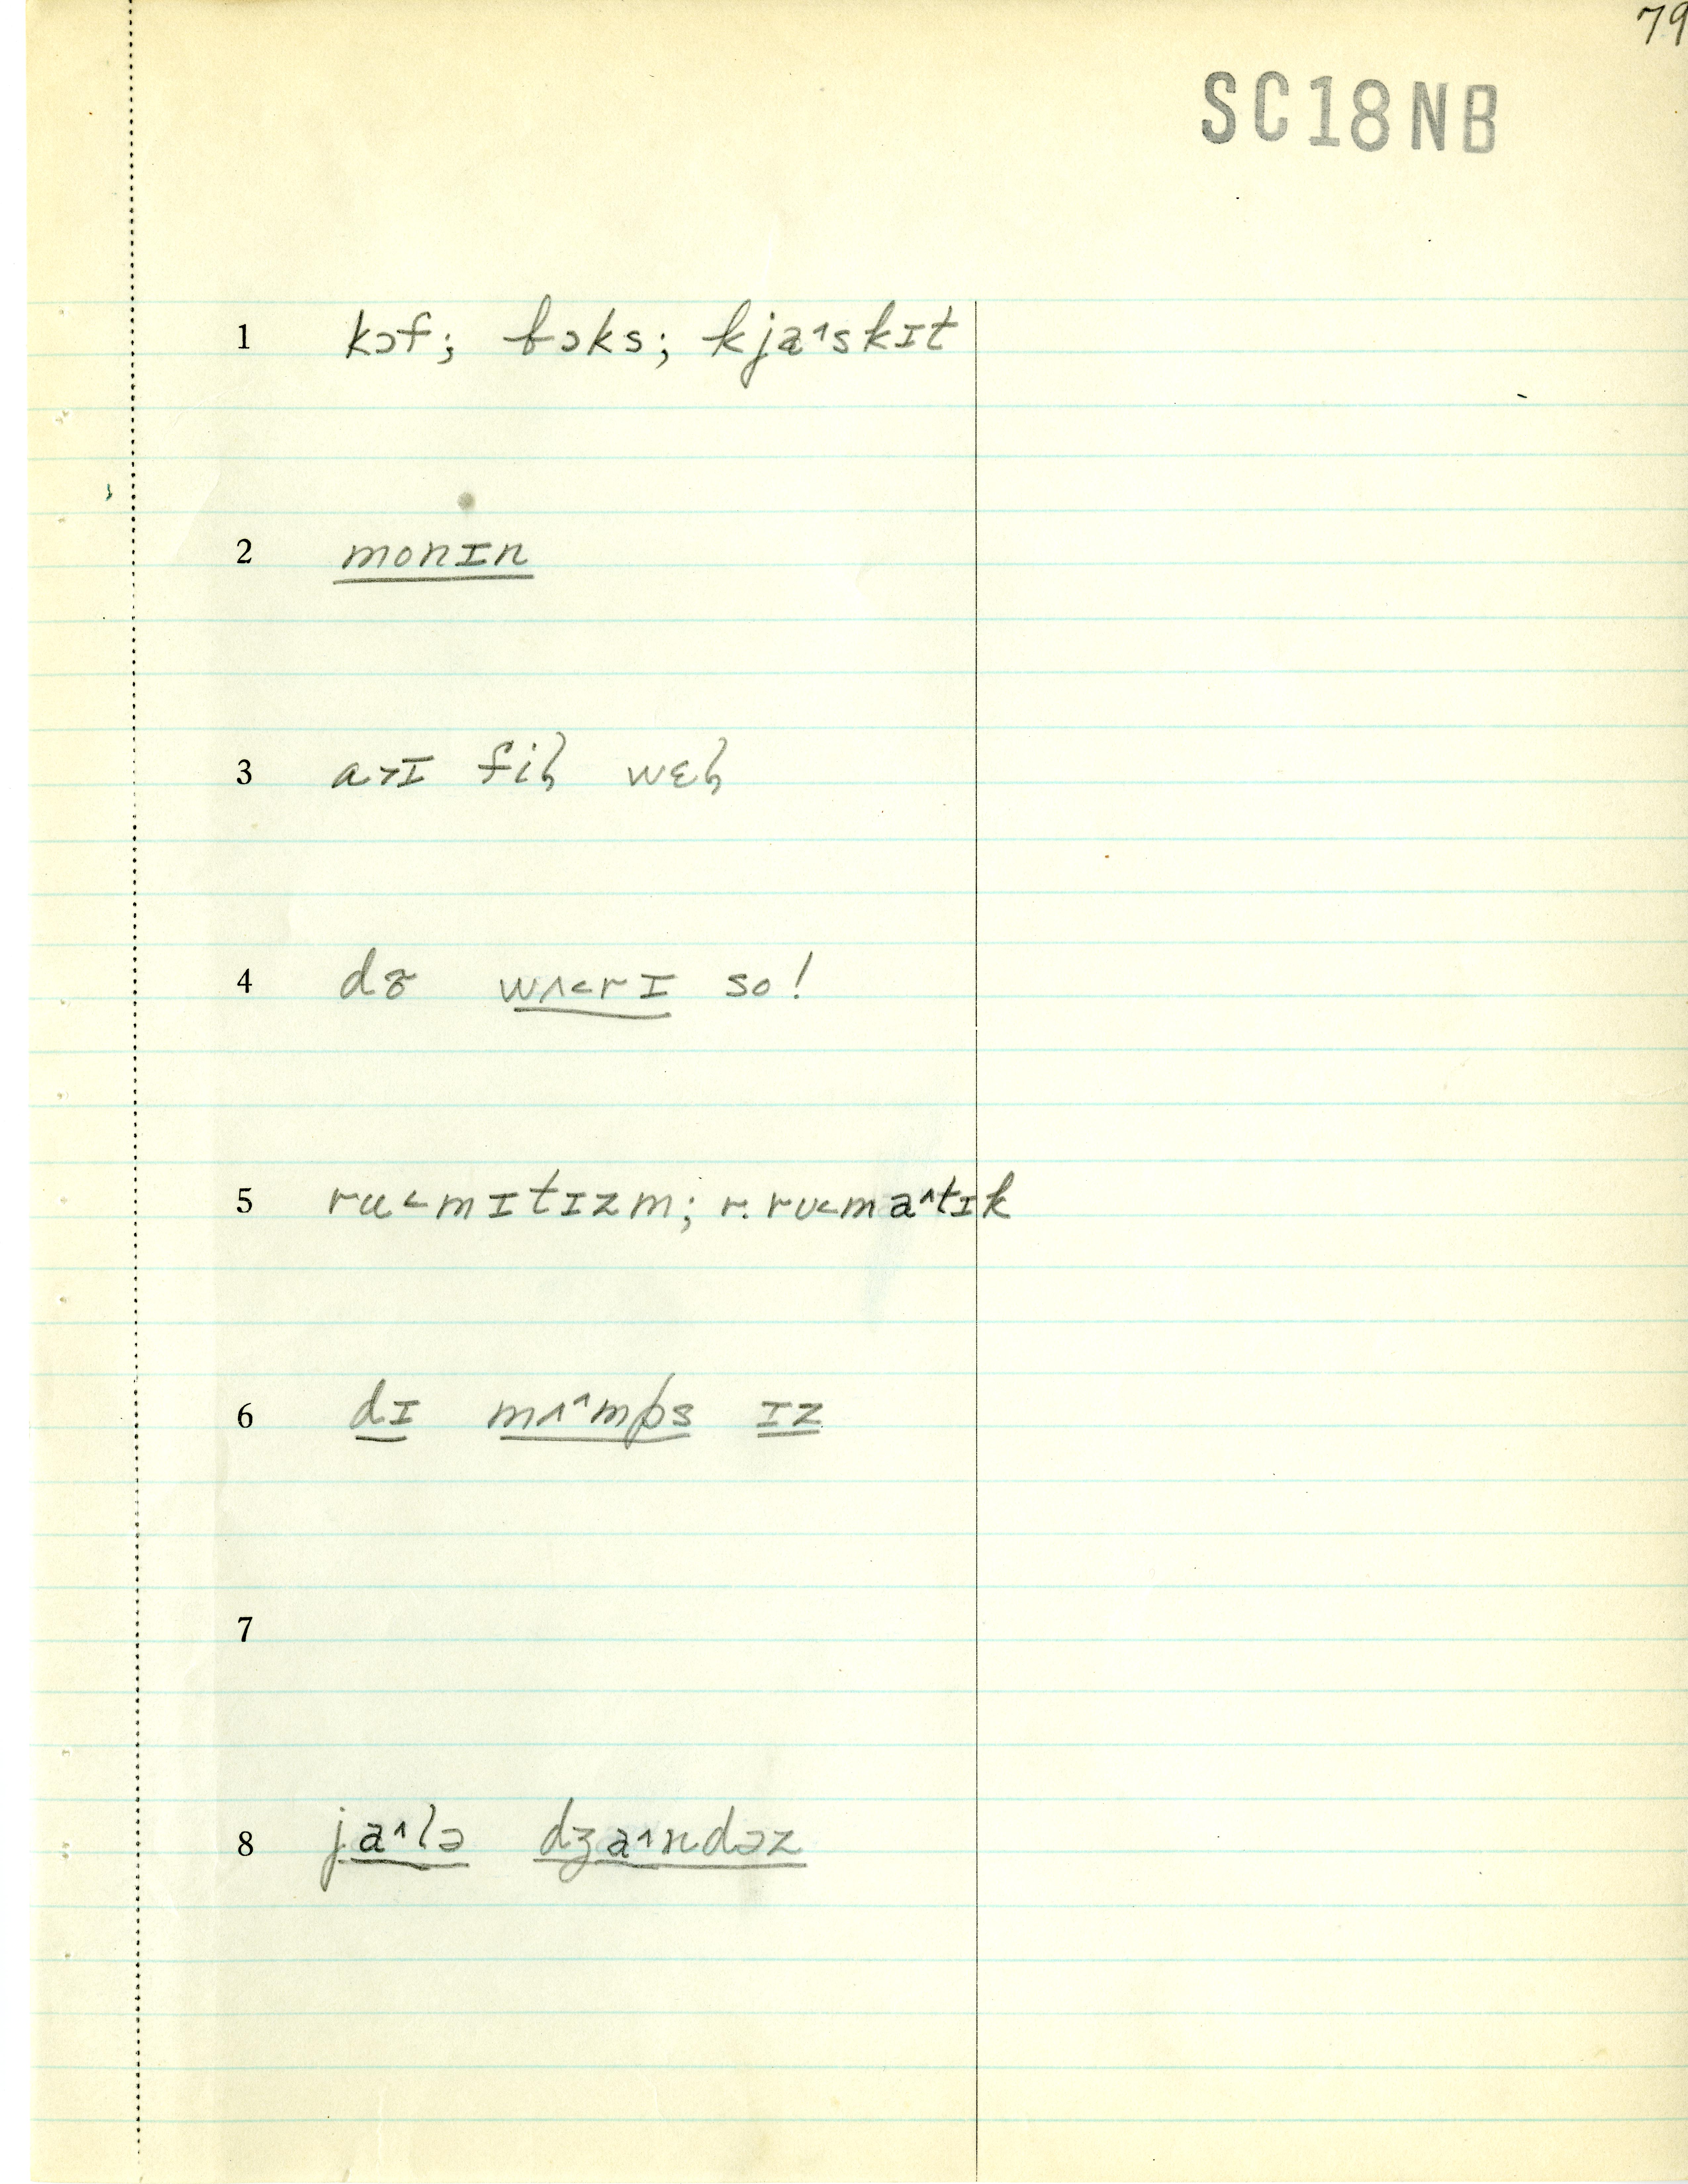 79
SC18NB
1 kɔf; bɔks; kja˄skɪt
2 monɪn
3 a˃ɪ fiɫ wɛɫ
4 wʌ˂rɪ so!
5 ru˂mɪtɪzm; r. ru˂ma˄tɪk
6 dɪ mʌ˄mps ɪz
7
8 ja˄lə dʒa˄ndəz